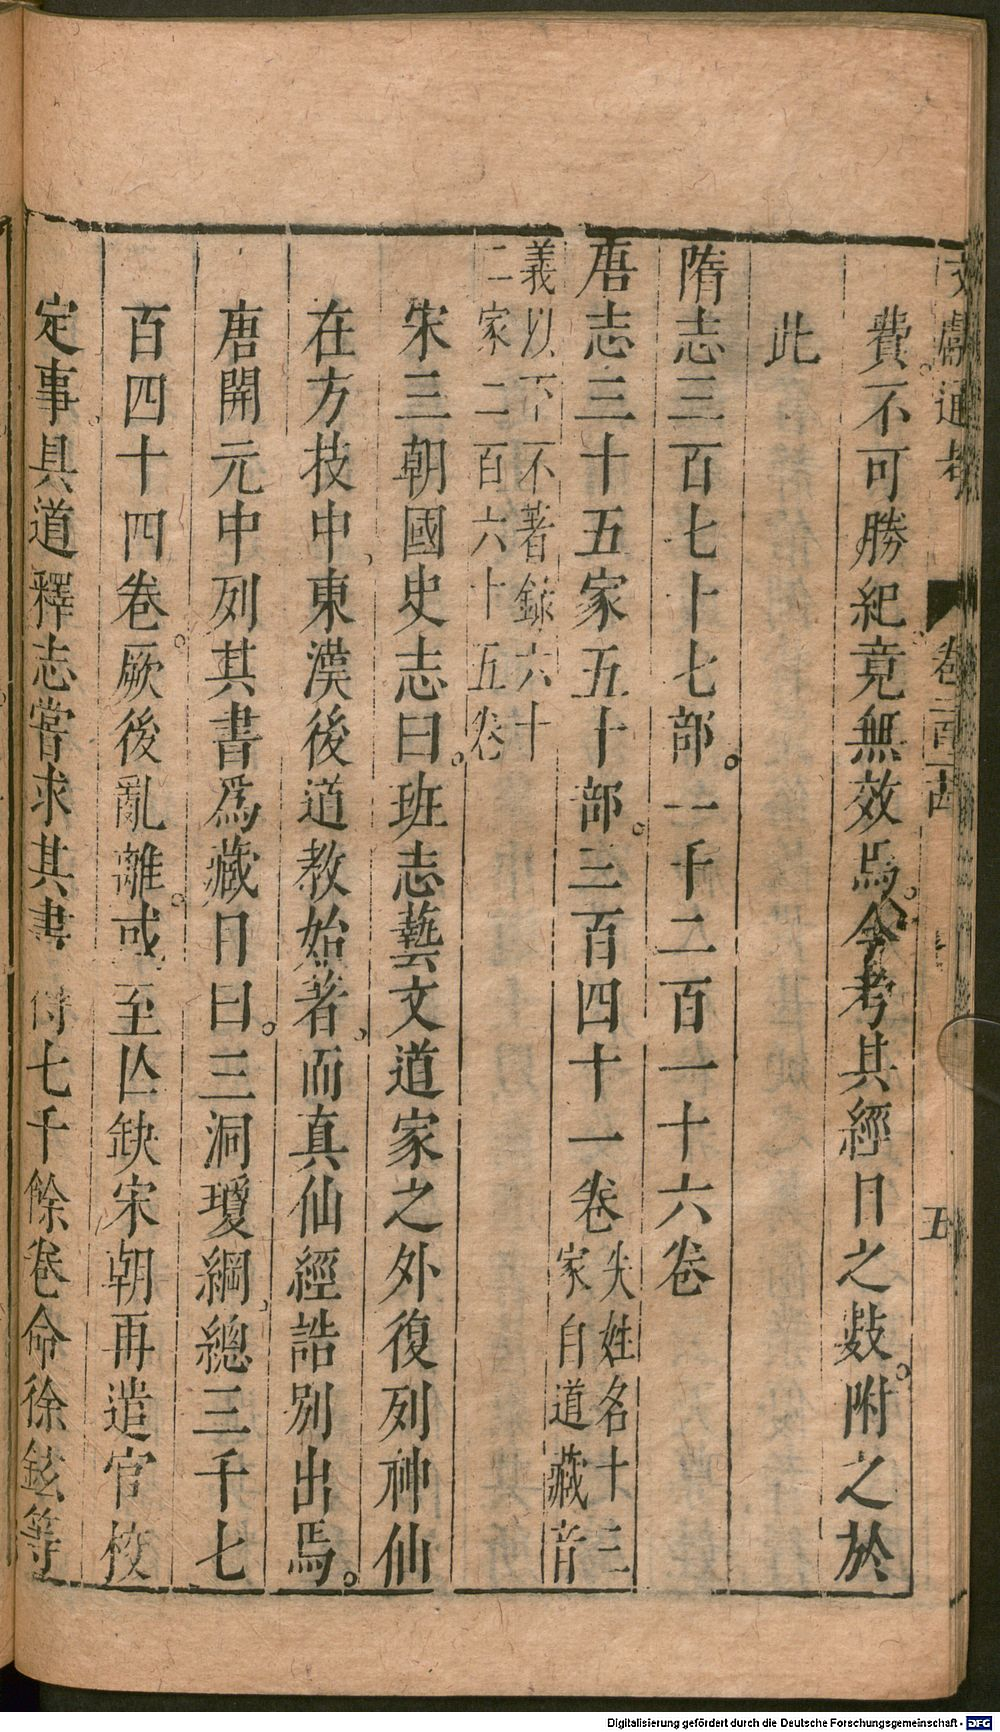 文獻通考 卷二百二十四 五
費不可勝紀竟無效焉今考其經目之數附之於
此
隋志三百七十七部一千二百一十六卷
唐志三十五家五十部三百四十一卷失姓名十三家自道藏音
義以下不著錄六十二家二百六十五卷
宋三朝國史志曰班志藝文道家之外復列神仙
在方技中東漢後道教始著而真仙經誥別出焉
唐開元中列其書爲藏目曰三洞瓊綱總三千七
百四十四卷厥後亂離或至亡缺宋朝再遣官校
定事具道釋志嘗求其書得七千餘卷命徐鉉等
Digitalisierung gefördert durch die Deutsche Forschungsgemeinschaft - DFG